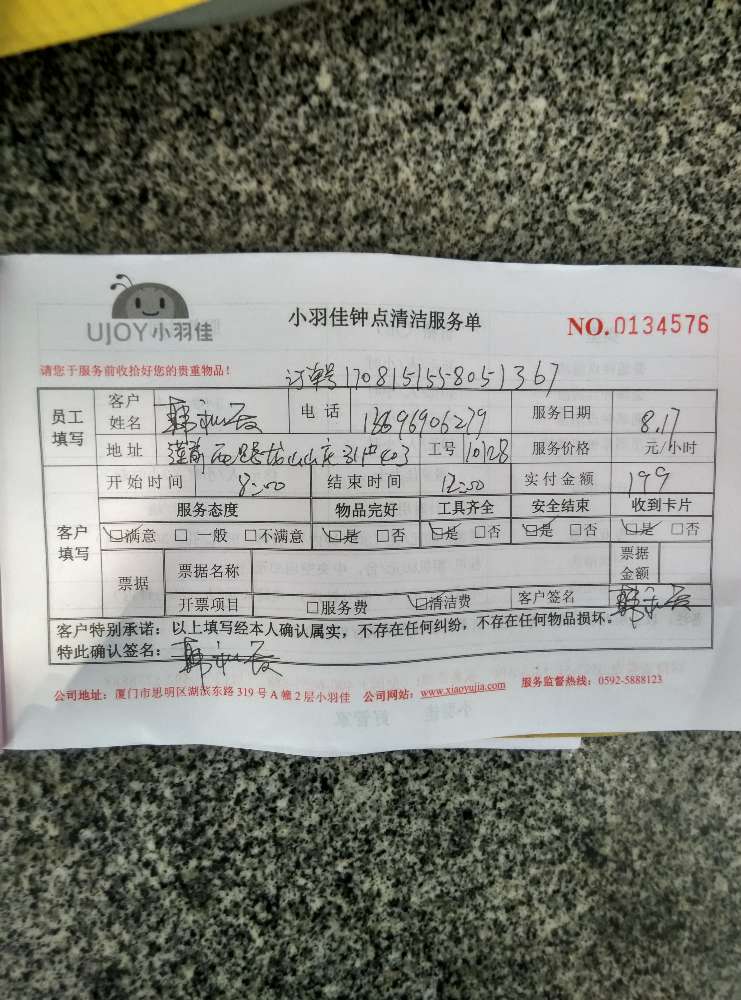 UJOY小羽佳
小羽佳钟点清洁服务单
NO.0134576
请您于服务前收拾好您的贵重物品!
订单号1708151558051367
员工填写 客户姓名 韩 电话 13696906279 服务日期 8.17
地址 莲前西路 山庄 403 工号 1028 服务价格 元/小时
开始时间 8:00 结束时间 12:00 实付金额 199
客户填写 服务态度 物品完好 工具齐全 安全结束 收到卡片
☑满意 □一般 □不满意 ☑是 □否 ☑是 □否 ☑是 □否 ☑是 □否
票据 票据名称 票据金额
开票项目 □服务费 ☑清洁费 客户签名 韩
客户特别承诺:以上填写经本人确认属实,不存在任何纠纷,不存在任何物品损坏。
特此确认签名: 韩
公司地址:厦门市思明区湖滨东路319号A幢2层小羽佳 公司网站:www.xiaoyujia.com 服务监督热线:0592-5888123